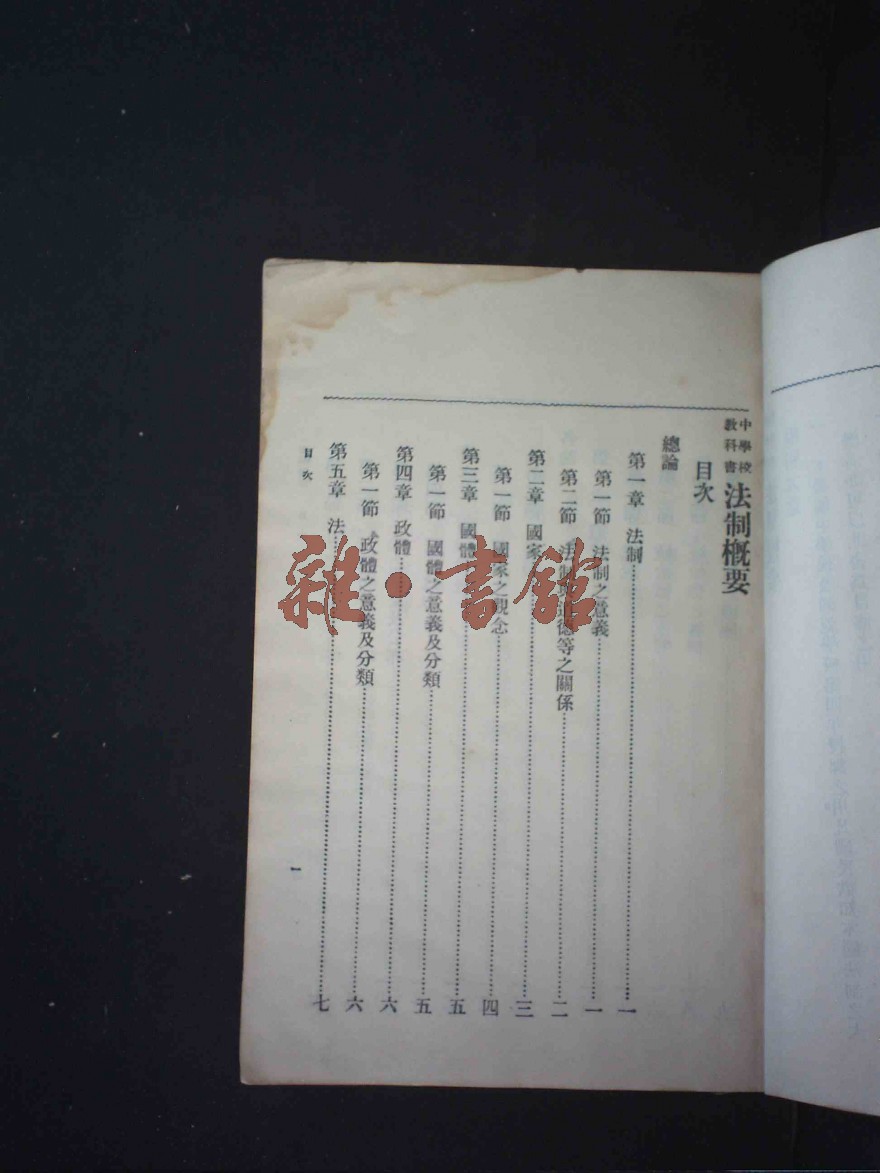 中學校教科書 法制概要
目次
總論
第一章 法制……一
第一節 法制之意義……一
第二節 法制與道德等之關係……二
第二章 國家……三
第一節 國家之觀念……四
第三章 國體……五
第一節 國體之意義及分類……五
第四章 政體……六
第一節 政體之意義及分類……六
第五章 法……七
目次
一
雜·書館